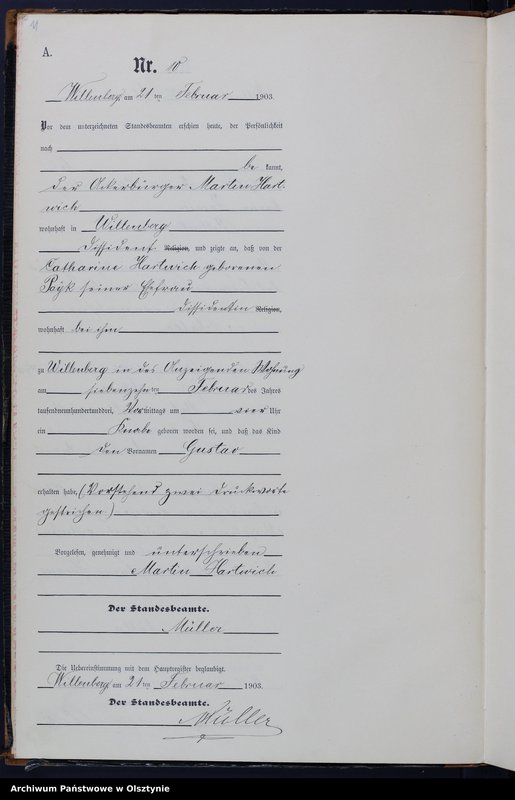 A.
Nr. 10
Willenberg am 21 ten Februar 1903.
Vor dem unterzeichneten Standesbeamten erschien heute, der Persönlichkeit
nach
be kannt,
der Ackerbürger Martin Hart-
wich
wohnhaft in Willenberg
Dissident Religion, und zeigte an, daß von der
Catharine Hartwich geborenen
seiner Ehefrau
Dissidentin Religion,
wohnhaft bei ihm
zu Willenberg in des Anzeigenden Wohnung
am siebenzehn ten Februar des Jahres
tausendneunhundertunddrei, Vor mittags um vier Uhr
ein Knabe geboren worden sei, und daß das Kind
den Vornamen Gustav
erhalten habe. (Vorstehend zwei Druckworte
gestrichen.)
Vorgelesen, genehmigt und unterschrieben
Martin Hartwich
Der Standesbeamte.
Müller
Die Uebereinstimmung mit dem Hauptregister beglaubigt.
Willenberg am 21 ten Februar 1903.
Der Standesbeamte.
Müller
Archiwum Państwowe w Olsztynie